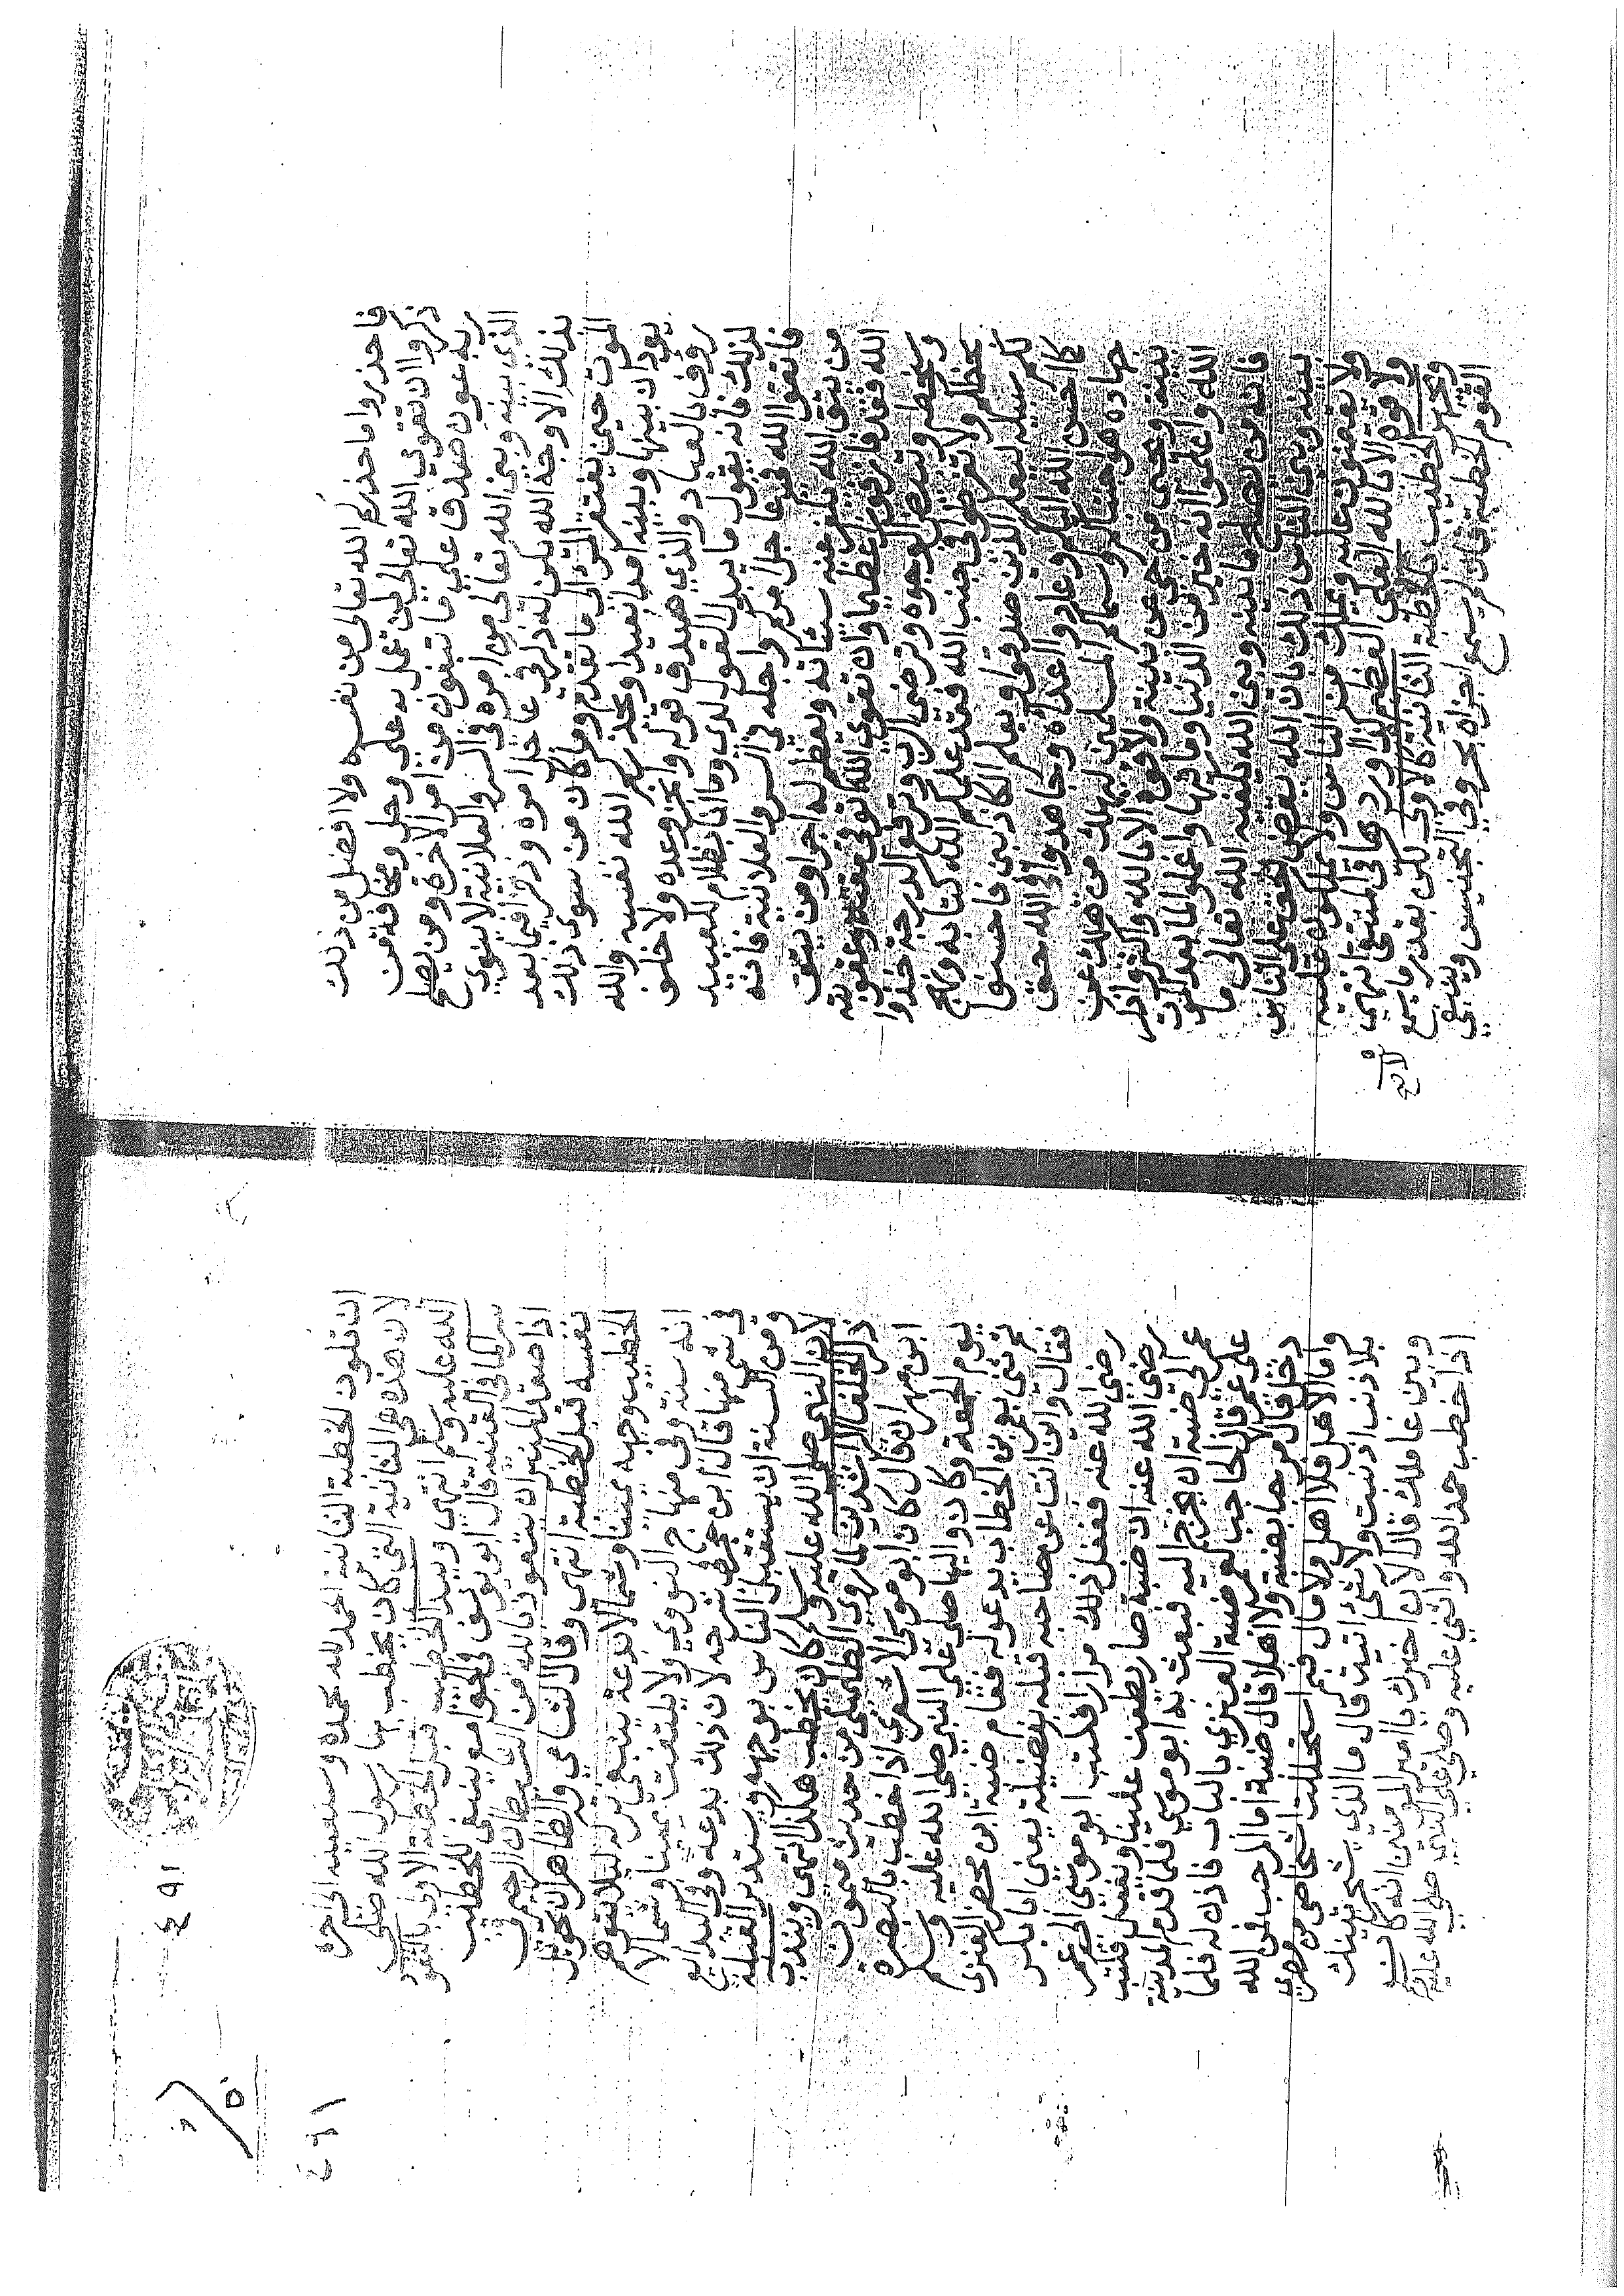 فاحذروا ما حذركم الله تعالى من نفسه ولا افضل من ذلك
ذكروا ان تقوي الله تعالى لمن عمل به على وجل ومخافة من
ربه عون صدق على ما تبغون من امر الاخرة ومن يصلح
الذي بينه وبين الله تعالى من امره في السر والعلانية لا ينوي
بذلك الا وجه الله يكن له ذكر في عاجل امره وذخرا فيما بعد
الموت حين يفتقر المرؤ الى ما تقدم وما كان من سوى ذلك
يود ان بينها وبينه امدا بعيدا ويحذركم الله نفسه والله
رووف بالعباد والذي صدق قوله وانجز وعده ولا خلف
لذلك فانه يقول ما يبدل القول لدي وما انا بظلام للعبيد
فاتقوا الله في عاجل امركم واجله في السر والعلانية فانه
من يتق الله يكفر عنه سيئاته ويعظم له اجرا ومن يتق
الله فقد فاز فوزا عظيما وان تقوي الله توقي مقته وعقوبته
وسخطه وتبيض الوجوه وترضي الرب وترفع الدرجة خذوا
بحظكم ولا تفرطوا في جنب الله فقد علمكم الله كتابه ونهج
لكم سبيله ليعلم الذين صدقوا ويعلم الكاذبين فاحسنوا
كما احسن الله اليكم وعادوا اعداءه وجاهدوا في الله حق
جهاده هو اجتباكم وسماكم المسلمين ليهلك من هلك عن
بينة ويحيى من حي عن بينة ولا قوة الا بالله واكثروا ذكر
الله واعلموا انه خير من الدنيا وما فيها واعملوا لما بعد الموت
فانه من يصلح ما بينه وبين الله يكفيه الله تعالى ما
بينه وبين الناس ذلك بان الله يقضي الحق على الناس
ولا يقضون عليه ويملك من الناس ولا يملكون عليه
ولا قوة الا بالله العلي العظيم كذا اوردها في المنتقى انتهى
ويجهر الخطيب بالخطبة الثانية كالاولى لكن بقدر ما يسمع
القوم الخطبة فان لم يسمع اجزاه بحر وفي التجنيس وينبغي
ان تكون الخطبة الثانية الحمد لله نحمده ونستعينه الى اخره
لان هذه هي الثانية التي كان يخطب بها رسول الله صلى
الله عليه وسلم انتهى ويبدا الخطيب قبل الخطبة الاولى بالتعوذ
سرا كما في القنية قال ابو يوسف في الجوامع ينبغي للخطيب
اذا صعد المنبر ان يتعوذ بالله من الشيطان الرجيم في
نفسه قبل الخطبة انتهى وقال الشامي والظاهر ان تحويل
الخطيب وجهه يمينا وشمالا بدعة ينبغي تركه ليلا يتوهم
انه سنة وفي منهاج النووي ولا يلتفت يمينا وشمالا
في شي منها قال ابن حجر في شرحه لان ذلك بدعة وفي البدايع
ومن السنة ان يستقبل الناس بوجهه ويستدبر القبلة
لان النبي صلى الله عليه وسلم كان يخطب هكذا انتهى ويندب
ذكر الخلفاء الراشدين لما روي الطلمنكي من حديث ميمون
ابن مهران قال كان ابو موسى الاشعري اذا خطب بالبصرة
يوم الجمعة وكان واليها صلى على النبي صلى الله عليه وسلم
ثم ثنى بعمر بن الخطاب يدعو له فقام ضبة ابن محصن العنزي
فقال واين انت عن صاحبه قبله بفضيلة يعني ابا بكر
رضي الله عنه ففعل ذلك مرارا فكتب ابو موسى الى عمر
رضي الله عنه ان ضبة صار يطعن علينا ويفعل فكتب
عمر الى ضبة ان يخرج اليه فبعث به ابو موسى فلما قدم المدينة
على عمر قال الحاجب لعمر ضبة العنزي بالباب فاذن له فلما
دخل قال مرحبا بضبة ولا اهلا قال ضبة اما الرحب فمن الله
واما الاهل فلا اهل ولا مال فبم استحللت اشخاصي من مصري
بلا ذنب اذنبت ولا شئ اتيت قال ما الذي شجر بينك
وبين عاملك قال الان اخبرك يا امير المومنين انه كان
اذا خطب حمد الله واثنى عليه وصلى على النبي صلى الله عليه وسلم
٤٩١